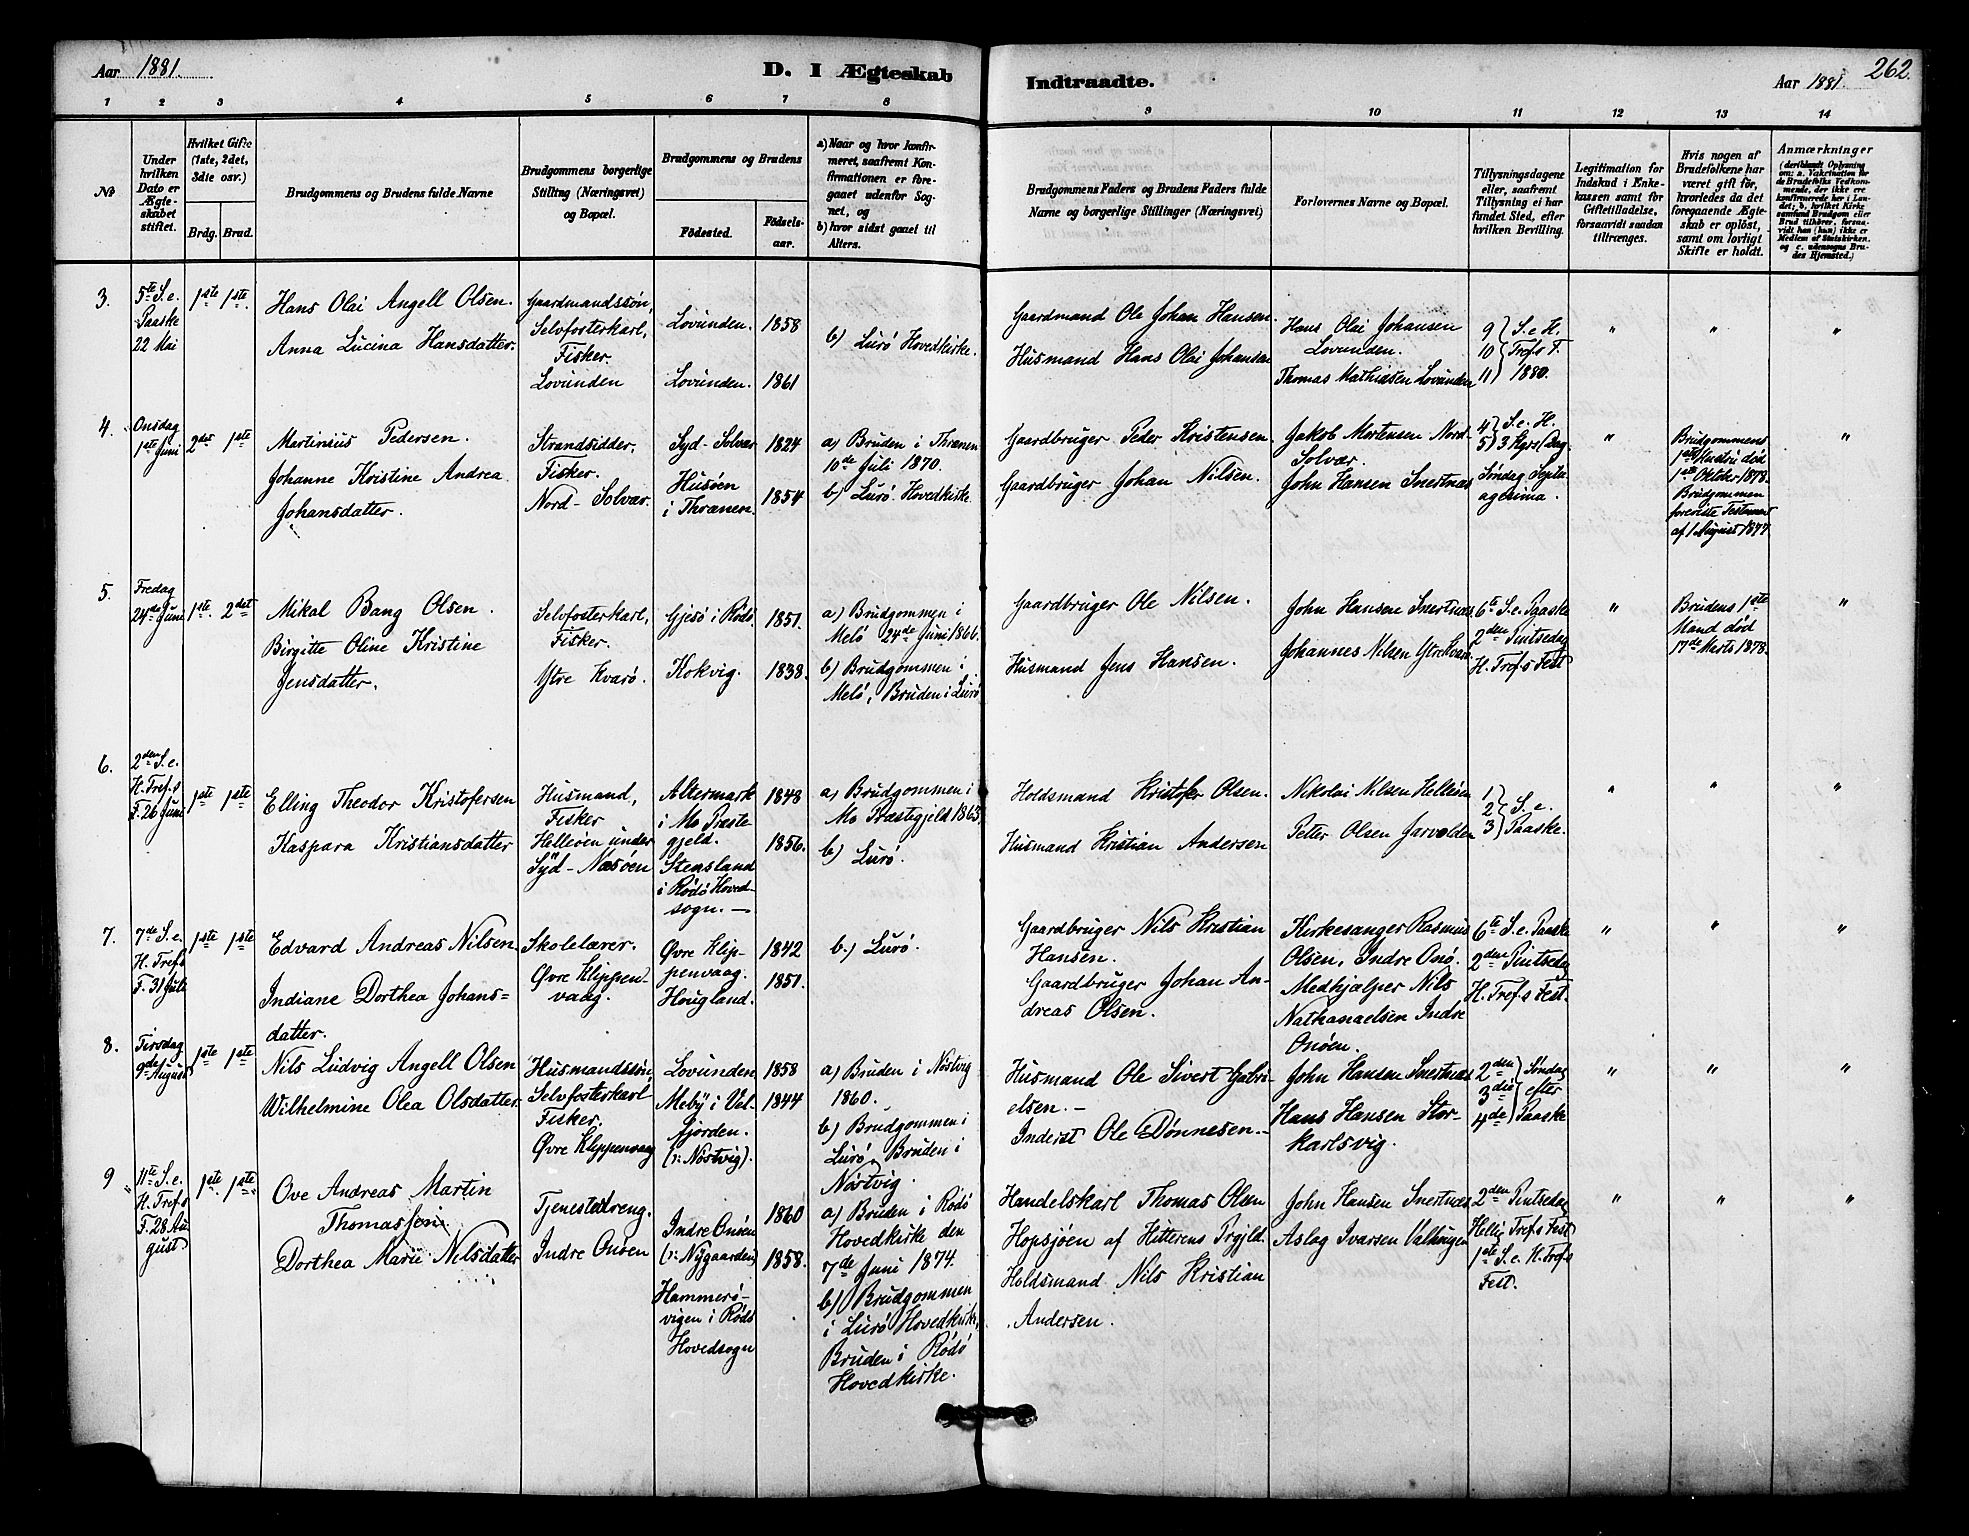 Aar 1881.
D. I Ægteskab
Indtraadte.
Aar 1881.
262.
1 2 3 4 5 6 7 8 9 10 11 12 13 14
No
Under
hvilken
Dato er
Ægte-
skabet
stiftet.
Hvilket Gifte
(1ste, 2det,
3die osv.)
Brdg. Brud.
Brudgommens og Brudens fulde Navne
Brudgommens borgerlige
Stilling (Næringsvei)
og Bopæl.
Brudgommens og Brudens
Födested.
Födsels-
aar.
a) Naar og hvor konfir-
meret, saafremt Kon-
firmationen er fore-
gaaet udenfor Sog-
net, og
b) hvor sidst gaaet til
Alters.
Brudgommens Faders og Brudens Faders fulde
Navne og borgerlige Stillinger (Næringsvei)
Forlovernes Navne og Bopæl.
Tillysningsdagene
eller, saafremt
Tillysning ei har
fundet Sted, efter
hvilken Bevilling.
Legitimation for
Indskud i Enke-
kassen samt for
Giftetilladelse,
forsaavidt saadan
tiltrænges.
Hvis nogen af
Brudefolkene har
været gift för,
hvorledes da det
foregaaende Ægte-
skab er oplöst,
samt om lovligt
Skifte er holdt.
Anmærkninger
(deriblandt Oplysning
om: a. Vakcination for
de Brudefolks Vedkom-
mende, der ikke ere
konfirmerede her i Lan-
det; b, hvilket Kirke
samfund Brudgom eller
Brud tilhörer, forsaa-
vidt han (hun) ikke er
Medlem af Statskirken.
og c. udensogns Bru-
des Hjemsted.)
3.
5te S. e.
Paaske
22 Mai
1ste 1ste
Hans Olai Angell Olsen.
Anna Lucina Hansdatter.
Gaardmandssön,
Selvfosterkarl,
Fisker.
Lovunden
Lovunden. 1858
Lovunden. 1861
b) Lurö Hovedkirke.
Gaardmand Ole Johan Hansen.
Husmand Hans Olai Johansen
Hans Olai Johansen
Lovunden.
Thomas Mathiasen Lovunden
9 } S. e. H.
10 } Tref.s F.
11 } 1880.
" " "
4.
Onsdag
1ste Juni
2det 1ste
Martinius Pedersen.
Johanne Kristine Andrea
Johansdatter.
Strandsidder,
Fisker.
Nord-Solvær.
Syd-Solvær 1824
Husöen
i Thrænen. 1854
a) Bruden i Thrænen
10de Juli 1870.
b) Lurö Hovedkirke.
Gaardbruger Peder Kristensen.
Gaardbruger Johan Nilsen.
Jakob Mortensen Nord-
Solvær.
John Hansen Snertnæs
4 } S. e. H.
5 } 3 Kgrs Dag
Söndag Septu-
agesima.
"
Brudgommens
1ste Hustru död
1ste Oktober 1878.
Brudgommen
foreviste Testament
af 1 August 1877.
"
5.
Fredag
24de Juni
1ste. 2det
Mikal Bang Olsen.
Birgitte Oline Kristine
Jensdatter.
Selvfosterkarl,
Fisker.
Ytre Kvarö.
Gjesö i Rödö 1851.
Kokvig. 1838.
a) Brudgommen i
Melö 24de Juni 1866.
b) Brudgommen i
Melö, Bruden i Lurö
Gaardbruger Ole Nilsen.
Husmand Jens Hansen.
John Hansen Snertnæs
Johannes Nilsen Ytre Kvarö
6te S. e. Paaske
2den Pintsedag
H. Tref.s Fest
"
Brudens 1ste
Mand död
17de Marts 1878.
"
6.
2den S. e.
H. Tref.s
F. 26 Juni
1ste 1ste
Elling Theodor Kristofersen
Kaspara Kristiansdatter
Husmand,
Fisker
Helleöen under
Syd-Næsöen
Altermark 1848
i Mo Præste
gjeld. 1856.
Stensland
i Rödö Hoved-
sogn. —
a) Brudgommen i
Mo Præstegjeld 1863.
b) Lurö.
Holdsmand Kristofer Olsen.
Husmand Kristian Andersen
Nikolai Nilsen Helleöen
Petter Olsen Jarvolden
1 }
2 } S. e.
3 } Paaske.
" " "
7.
7de S. e.
H. Tref.s
F. 31 Juli
1ste 1ste
Edvard Andreas Nilsen
Indiane Dorthea Johans=
datter.
Skolelærer.
Øvre Klippen-
vaag.
Øvre Klip- 1842
penvaag. 1851.
Hougland.
b.) Lurö.
Gaardbruger Nils Kristian
Hansen.
Gaardbruger Johan An-
dreas Olsen.
Kirkesanger Rasmus
Olsen, Indre Onö.
Medhjælper Nils
Nathanaelsen Indre
Onöen.
6te S. e. Paaske
2den Pintsedag
H. Tref.s Fest.
" " "
8.
Tirsdag
9de August
1ste 1ste
Nils Ludvig Angell Olsen
Wilhelmine Olea Olsdatter
Husmandssön,
Selvfosterkarl
Fisker.
Øvre Klippenvaag
Lovunden 1858
Meby i Vel- 1844
fjorden.
(ɔ: Nöstvig).
a) Bruden i Nöstvig
1860.
b) Brudgommen i
Lurö, Bruden i
Nöstvig.
Husmand Ole Sivert Gabri-
elsen. -
Inderst Ole Dönnesen. -
John Hansen Snertnæs
Hans Hansen Stor-
karlsvig.
2den } Söndag
3die } efter
4de } Paaske
" " "
9
11te S. e.
H. Tref.s
F. 28 Au
gust
1ste 1ste
Ove Andreas Martin
Thomassen
Dorthea Marie Nilsdatter
Tjenestedreng.
Indre Onöen
1860
Indre Onöen
(ɔ: Nygaarden) 1858.
Hammerö-
vigen i Rödö
Hovedsogn
a) Bruden i Rödö
Hovedkirke den
7de Juni 1874.
b) Brudgommen
i Lurö Hovedkirke,
Bruden i Rödö
Hovedkirke.
Handelskarl Thomas Olsen
Hopsjöen af Hitterens Prgjld.
Holdsmand Nils Kristian
Andersen.
John Hansen Snertnæs
Aslag Ivarsen Valhaugen
2den Pintsedag
Hellig Tref.s Fest
1ste S. e. H. Tref.s
Fest.
" " "